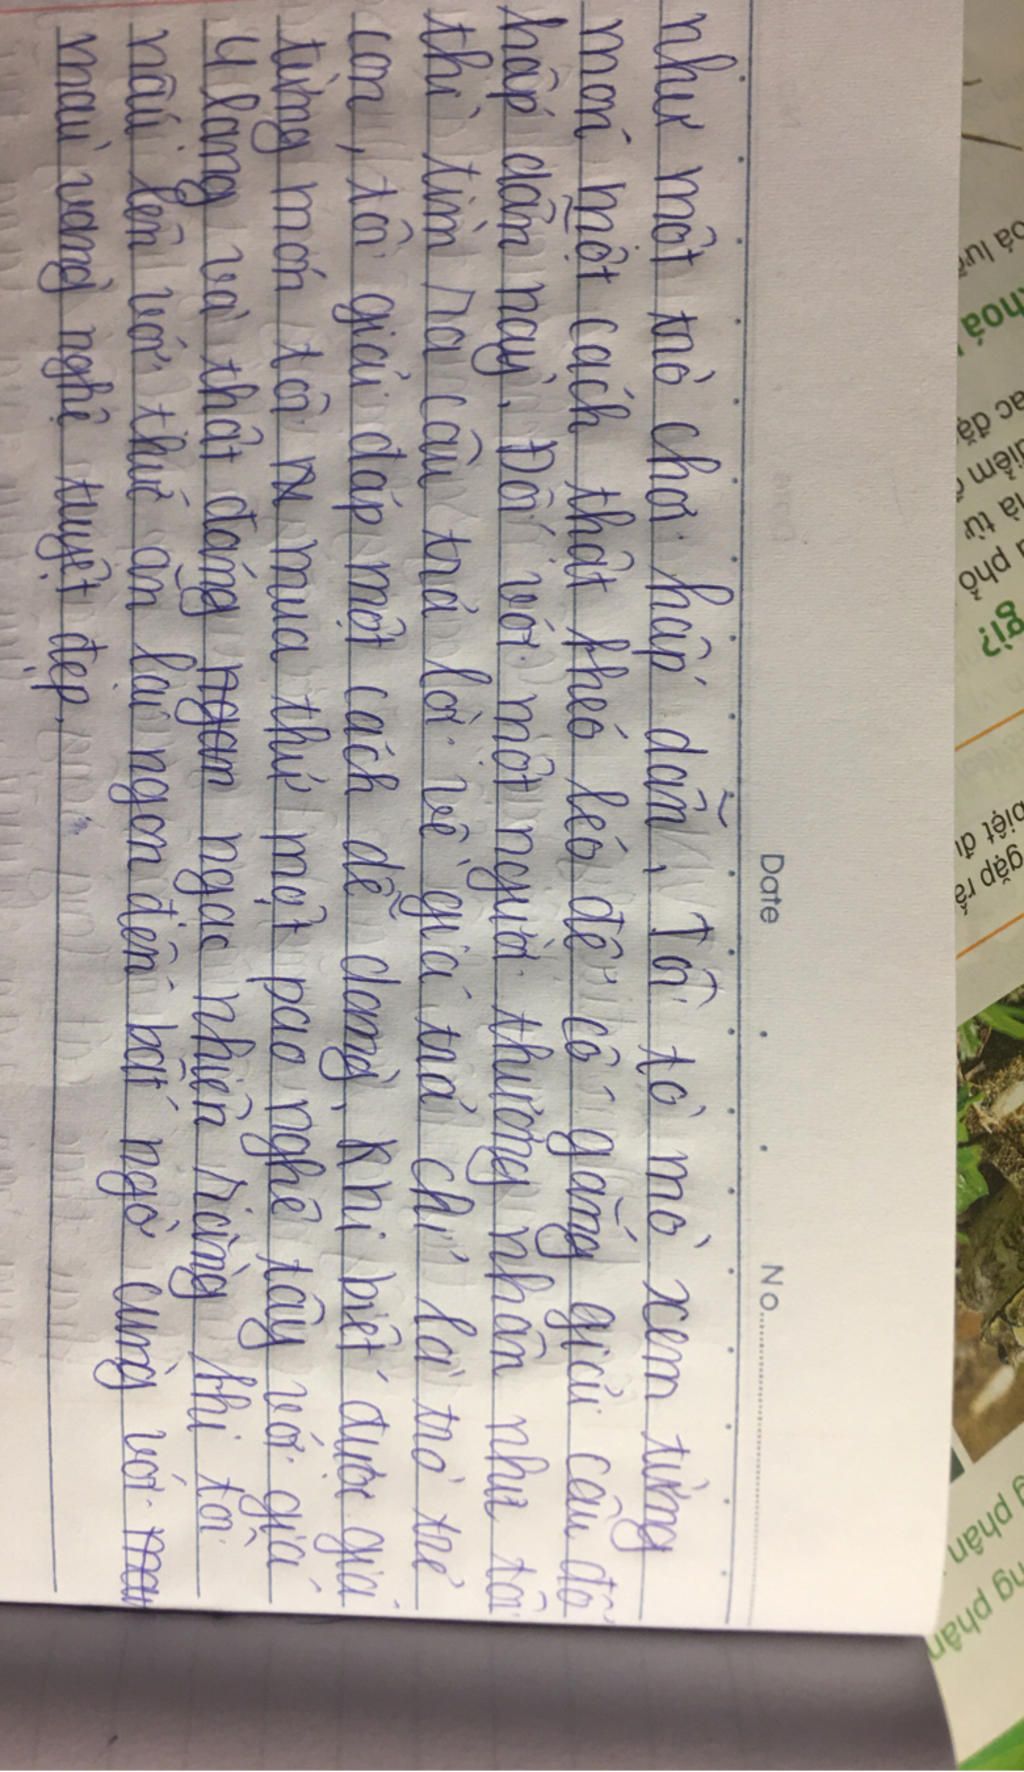 Date . . No.
như một trò chơi hấp dẫn. Tôi tò mò xem từng
món một cách thật khéo léo để cố gắng giải câu đố
hấp dẫn này. Đối với một người thương nhân như tôi
thì tìm ra câu trả lời về giá trả chỉ là trò trẻ
con, tôi giải đáp một cách dễ dàng. Khi biết được giá
từng món tôi mua thử một pao nghệ tây với giá
4 lạng và thật đáng ngạc nhiên rằng khi tôi
nấu lên với thức ăn lại ngon đến bất ngờ cùng với
màu vàng nghệ tuyệt đẹp.
gì?
phổ
là từ
điểm
đặc
khoá
gặp rắ
biệt đư
g phân
ng phân